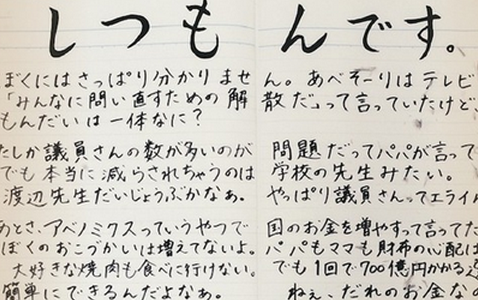 しつもんです。
ぼくにはさっぱり分かりません。あべそーりはテレビ
「みんなに問い直すための解散だ」って言っていたけど、
もんだいは一体なに？
たしか議員さんの数が多いのが問題だってパパが言って
でも本当に減らされちゃうのは学校の先生みたい。
渡辺先生だいじょうぶかなぁ。やっぱり議員さんってエライん
あとさ、アベノミクスっていうやつで国のお金を増やすって言ってた
ぼくのおこづかいは増えてないよ。パパもママも財布の心配は
大好きな焼肉も食べに行けない。でも1回で700億円かかる
簡単にできるんだよなぁ。ねぇ、だれのお金な